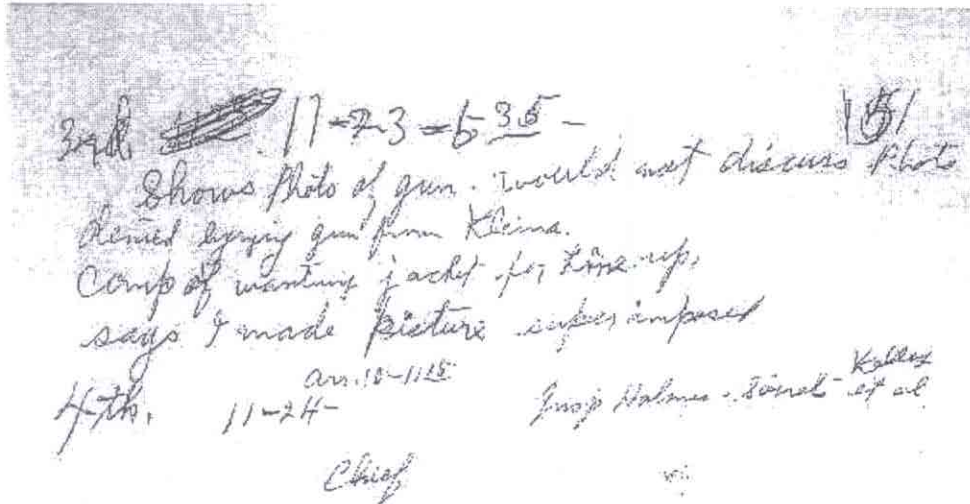 3rd. 11-23-6 35 - 151
Shows Photo of gun. would not discuss Photo
denied buying gun from Kleins.
Comp of wanting jacket for Line-up.
says I made picture super imposed
arr. 10-11 15 Kelley
4th. 11-24- Insp Holmes - Sorrels et al
Chief